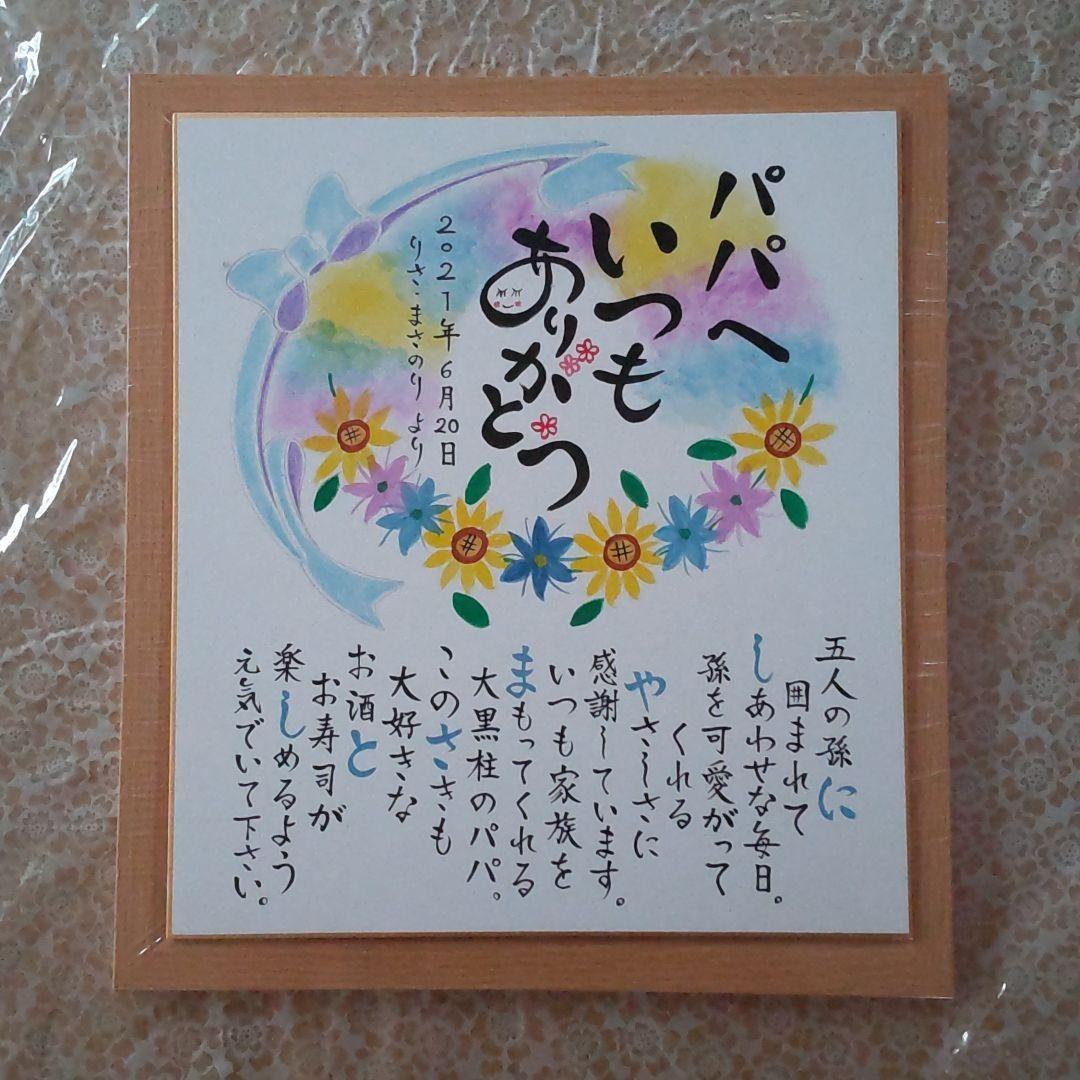 パパへ
いつも
ありがとう
2021年6月20日
りさ・まさのりより
五人の孫に
囲まれて
しあわせな毎日。
孫を可愛がって
くれる
やさしさに
感謝しています。
いつも家族を
まもってくれる
大黒柱のパパ。
このさきも
大好きな
お酒と
お寿司が
楽しめるよう
元気でいて下さい。